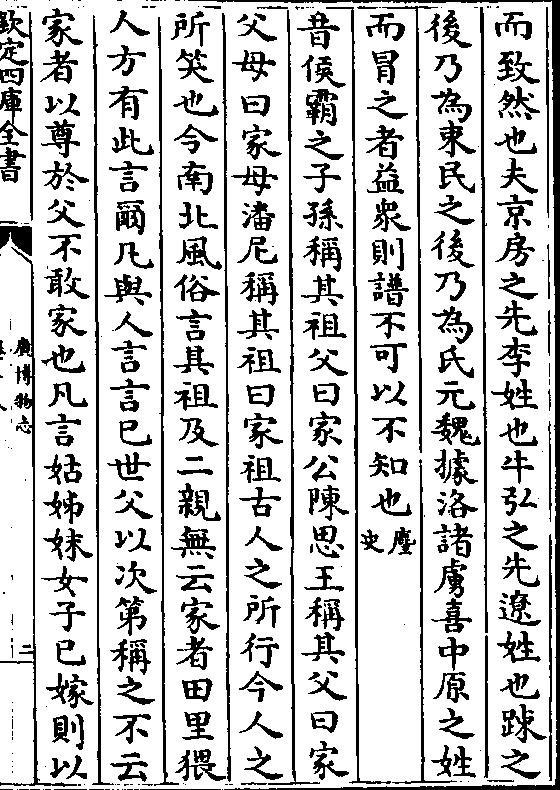 而致然也夫京房之先李姓也牛弘之先遼姓也踈之
後乃為束民之後乃為氏元魏據洛諸虜喜中原之姓
而冒之者益衆則譜不可以不知也 麈史
昔侯霸之子孫稱其祖父曰家公陳思王稱其父曰家
父母曰家母潘尼稱其祖曰家祖古人之所行今人之
所笑也今南北風俗言其祖及二親無云家者田里猥
人方有此言爾凡與人言言已世父以次第稱之不云
家者以尊於父不敢家也凡言姑姊妹女子已嫁則以
欽定四庫全書
廣博物志
二